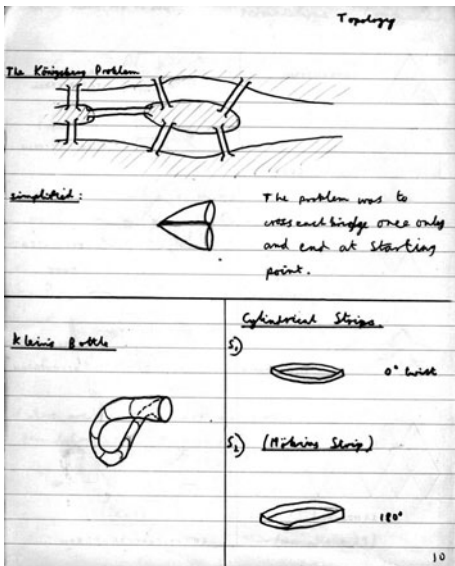 Topology
The Königsberg Problem
simplified:
The problem was to
cross each bridge once only
and end at starting
point.
Klein's Bottle
Cylindrical Strips.
S₁)
0° twist
S₂) (Möbius Strip)
180°
10